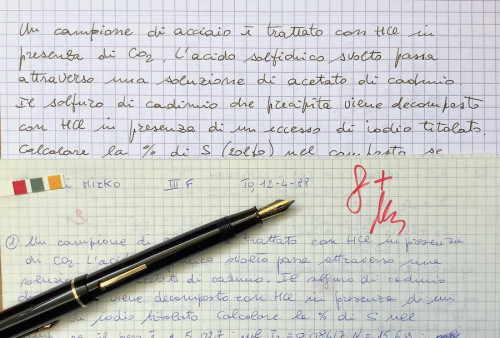 Un campione di acciaio è trattato con HCl in
presenza di CO2. L'acido solfidrico svolto passa
attraverso una soluzione di acetato di cadmio
Il solfuro di cadmio che precipita viene decomposto
con HCl in presenza di un eccesso di iodio titolato.
Calcolare la % di S (zolfo) nel composto se
Mirko III F To, 12-4-88
8+
① Un campione di trattato con HCl in presenza
di CO2. L'acido svolto passa attraverso una
soluzione acetato di cadmio. Il solfuro di cadmio
viene decomposto con HCl in presenza di un
di iodio titolato. Calcolare la % di S nel